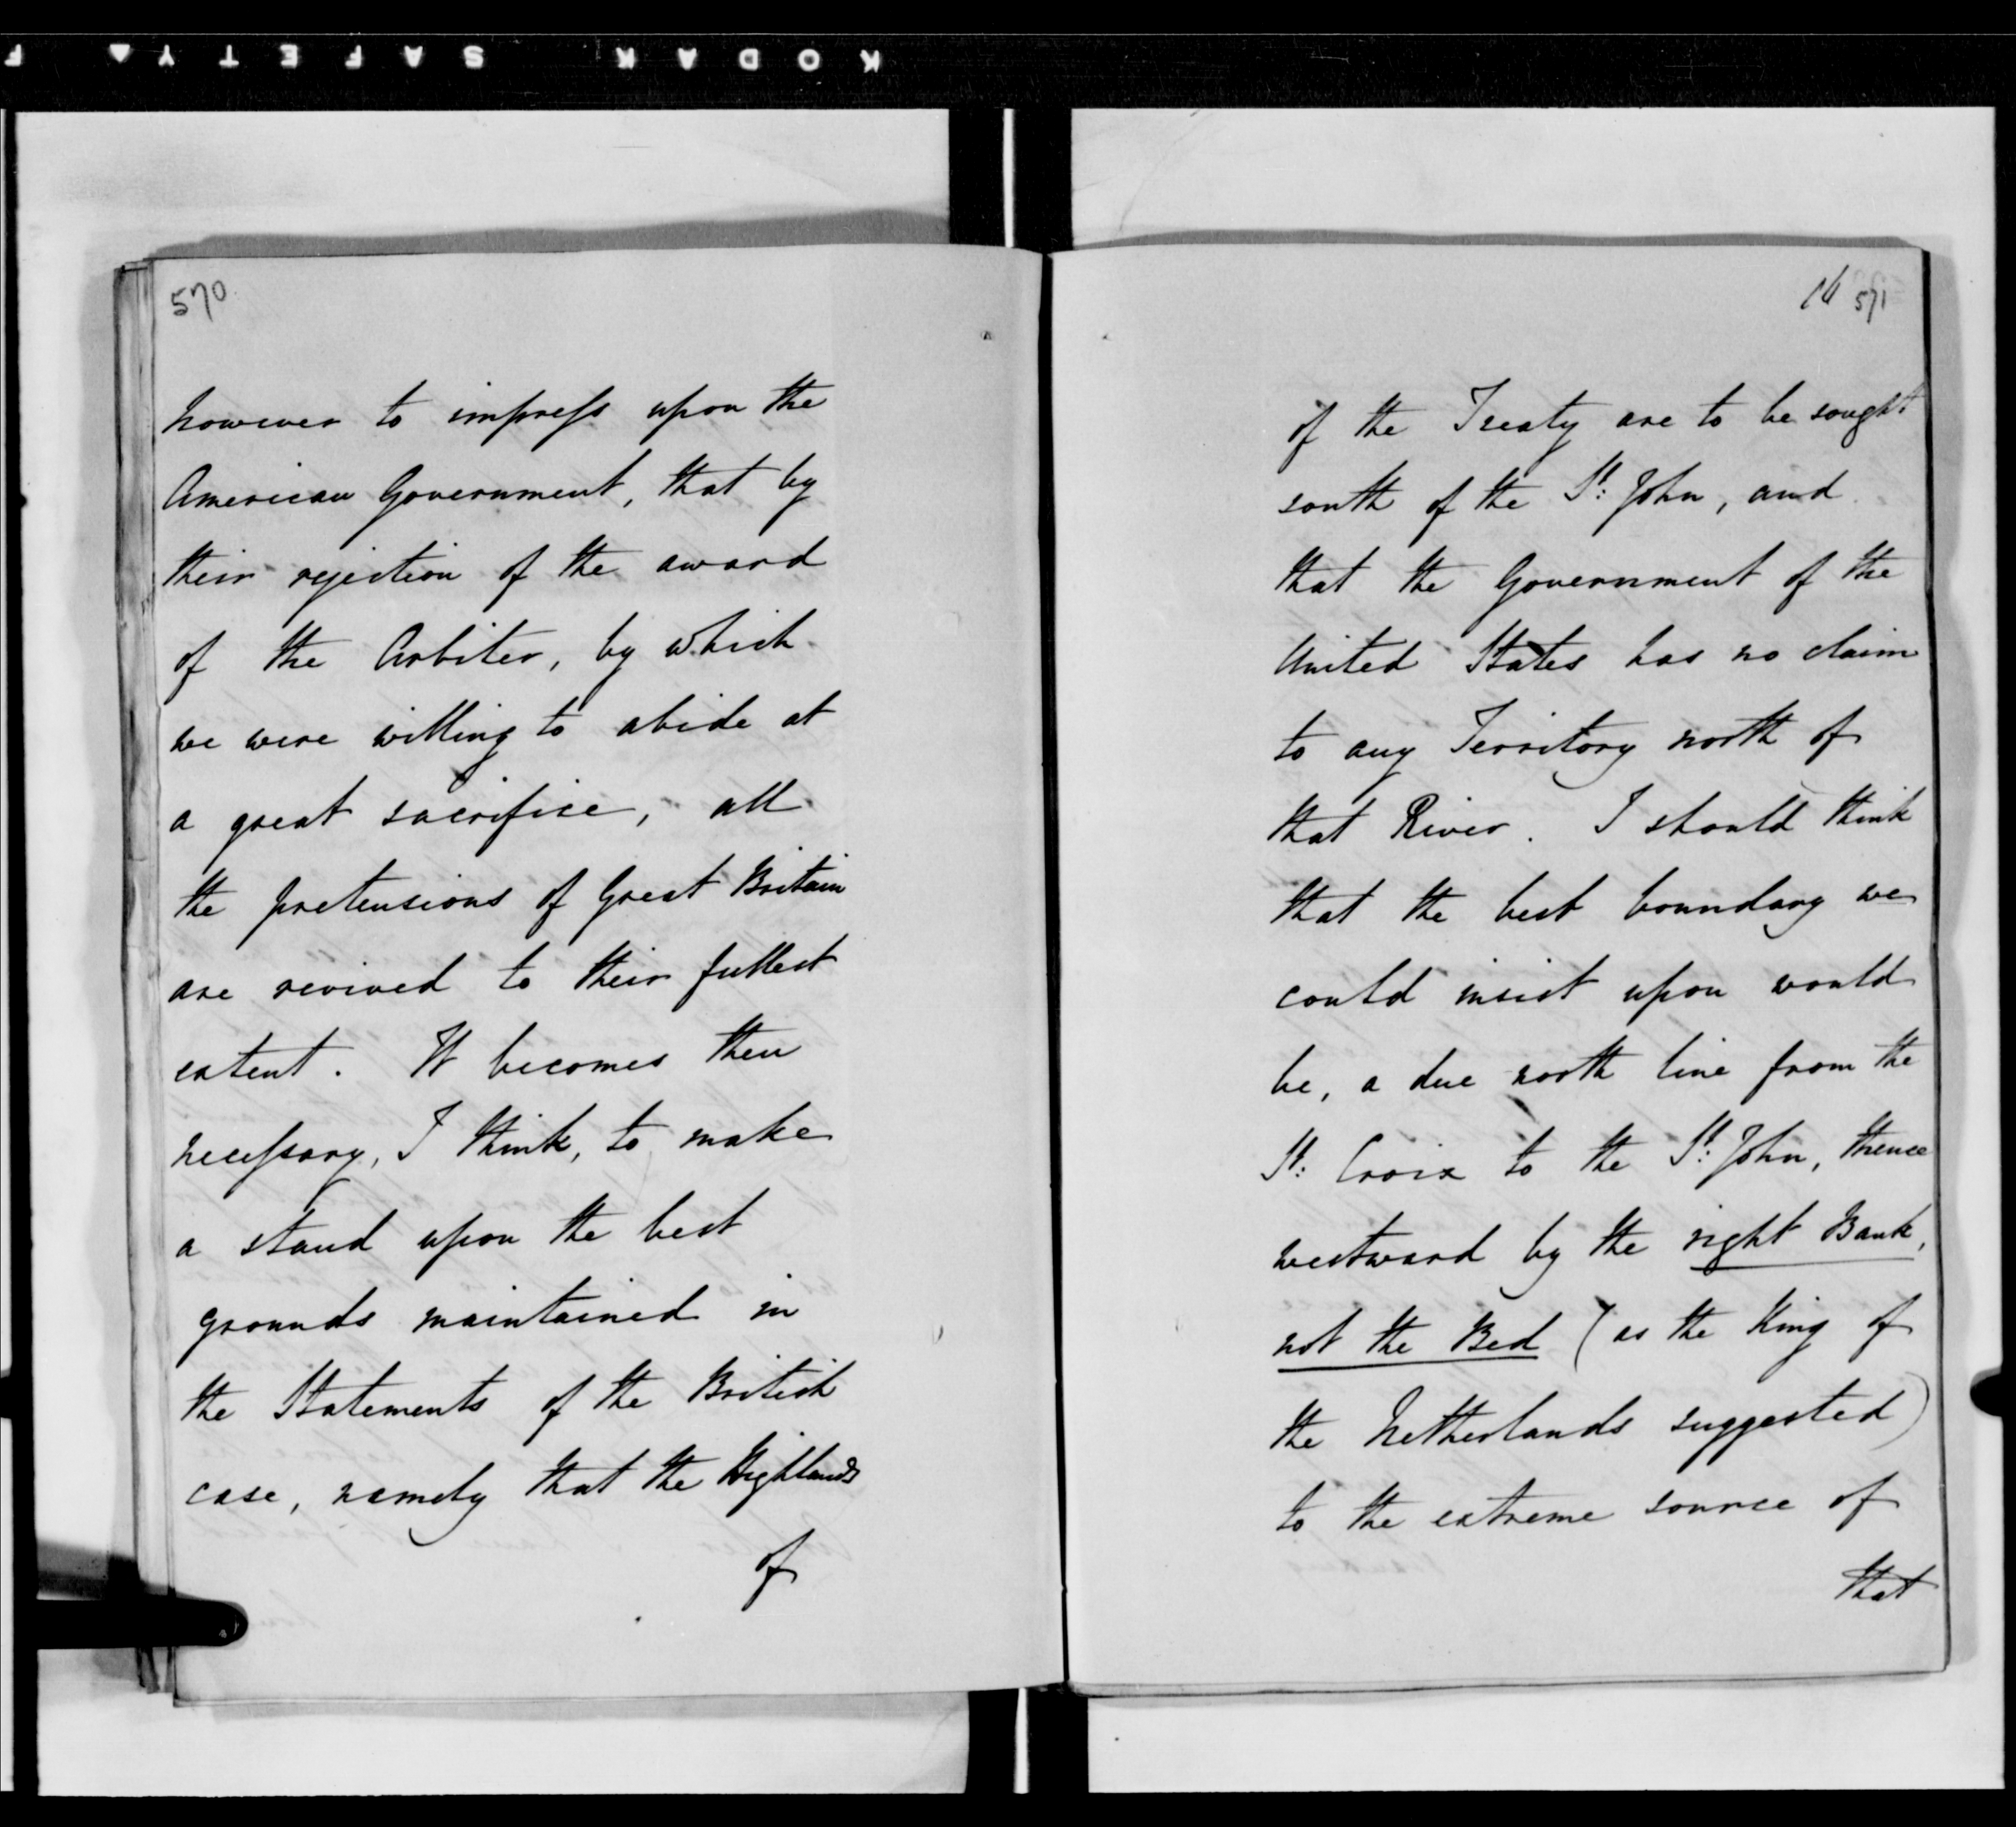 KODAK SAFETY F
570
however to impress upon the
American Government, that by
their rejection of the award
of the Arbiter, by which
we were willing to abide at
a great sacrifice, all
the pretensions of Great Britain
are revived to their fullest
extent. It becomes then
necessary, I think, to make
a stand upon the best
grounds maintained in
the Statements of the British
case, namely that the Highlands
of
571
of the Treaty are to be sought
south of the St: John, and
that the Government of the
United States has no claim
to any Territory north of
that River. I should think
that the best boundary we
could insist upon would
be, a due north line from the
St: Croix to the St: John, thence
westward by the right Bank,
not the Bed (as the King of
the Netherlands suggested)
to the extreme source of
that